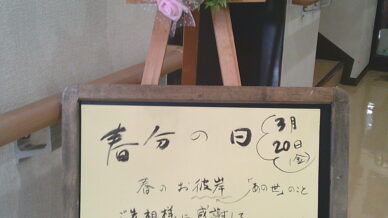 春分の日
3月
20日
(金)
春のお彼岸 「あの世」のこと
ご先祖様に感謝して